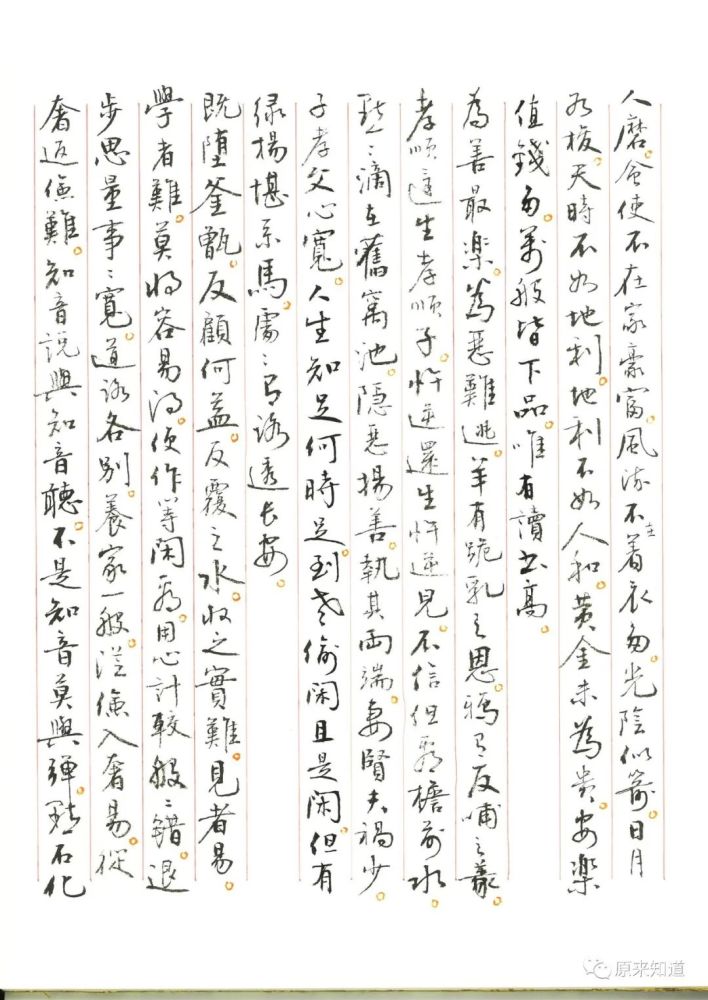 人磨。會使不在家豪富。風流不在著衣多。光陰似箭。日月
如梭。天時不如地利。地利不如人和。黃金未為貴。安樂
值錢多。萬般皆下品。唯有讀書高。
為善最樂。為惡難逃。羊有跪乳之恩。鴉有反哺之義。
孝順還生孝順子。忤逆還生忤逆兒。不信但看檐前水。
點〻滴在舊窩池。隱惡揚善。執其兩端。妻賢夫禍少。
子孝父心寬。人生知足何時足。到老偷閑且是閑。但有
綠楊堪系馬。處〻有路透長安。
既墮釜甑。反顧何益。反覆之水。收之實難。見者易。
學者難。莫將容易得。便作等閑看。用心計較般〻錯。退
步思量事〻寬。道路各別。養家一般。從儉入奢易。從
奢返儉難。知音說與知音聽。不是知音莫與彈。點石化
原来知道